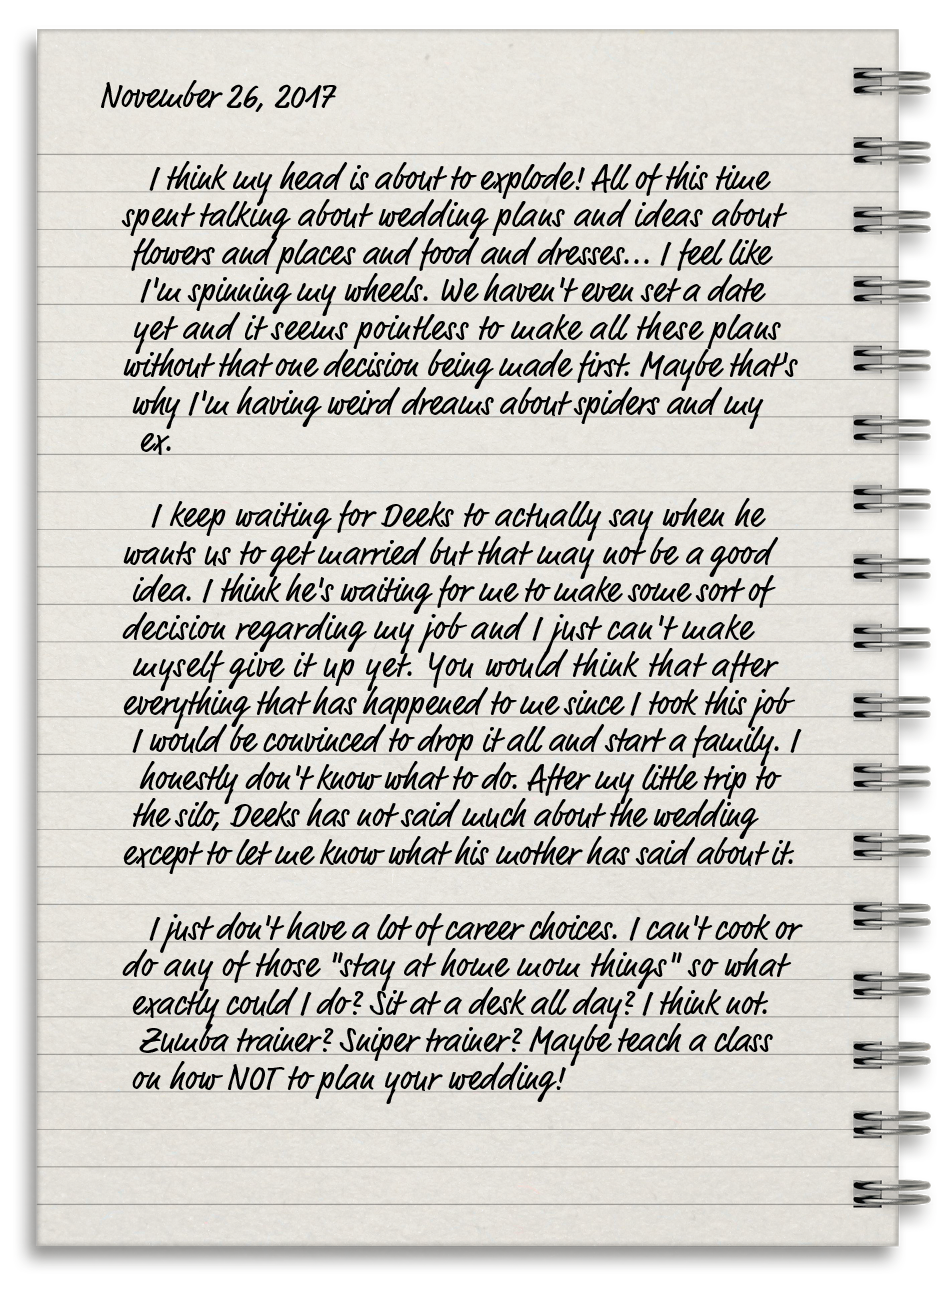 November 26, 2017
I think my head is about to explode! All of this time
spent talking about wedding plans and ideas about
flowers and places and food and dresses... I feel like
I'm spinning my wheels. We haven't even set a date
yet and it seems pointless to make all these plans
without that one decision being made first. Maybe that's
why I'm having weird dreams about spiders and my
ex.
I keep waiting for Deeks to actually say when he
wants us to get married but that may not be a good
idea. I think he's waiting for me to make some sort of
decision regarding my job and I just can't make
myself give it up yet. You would think that after
everything that has happened to me since I took this job
I would be convinced to drop it all and start a family. I
honestly don't know what to do. After my little trip to
the silo, Deeks has not said much about the wedding
except to let me know what his mother has said about it.
I just don't have a lot of career choices. I can't cook or
do any of those "stay at home mom things" so what
exactly could I do? Sit at a desk all day? I think not.
Zumba trainer? Sniper trainer? Maybe teach a class
on how NOT to plan your wedding!